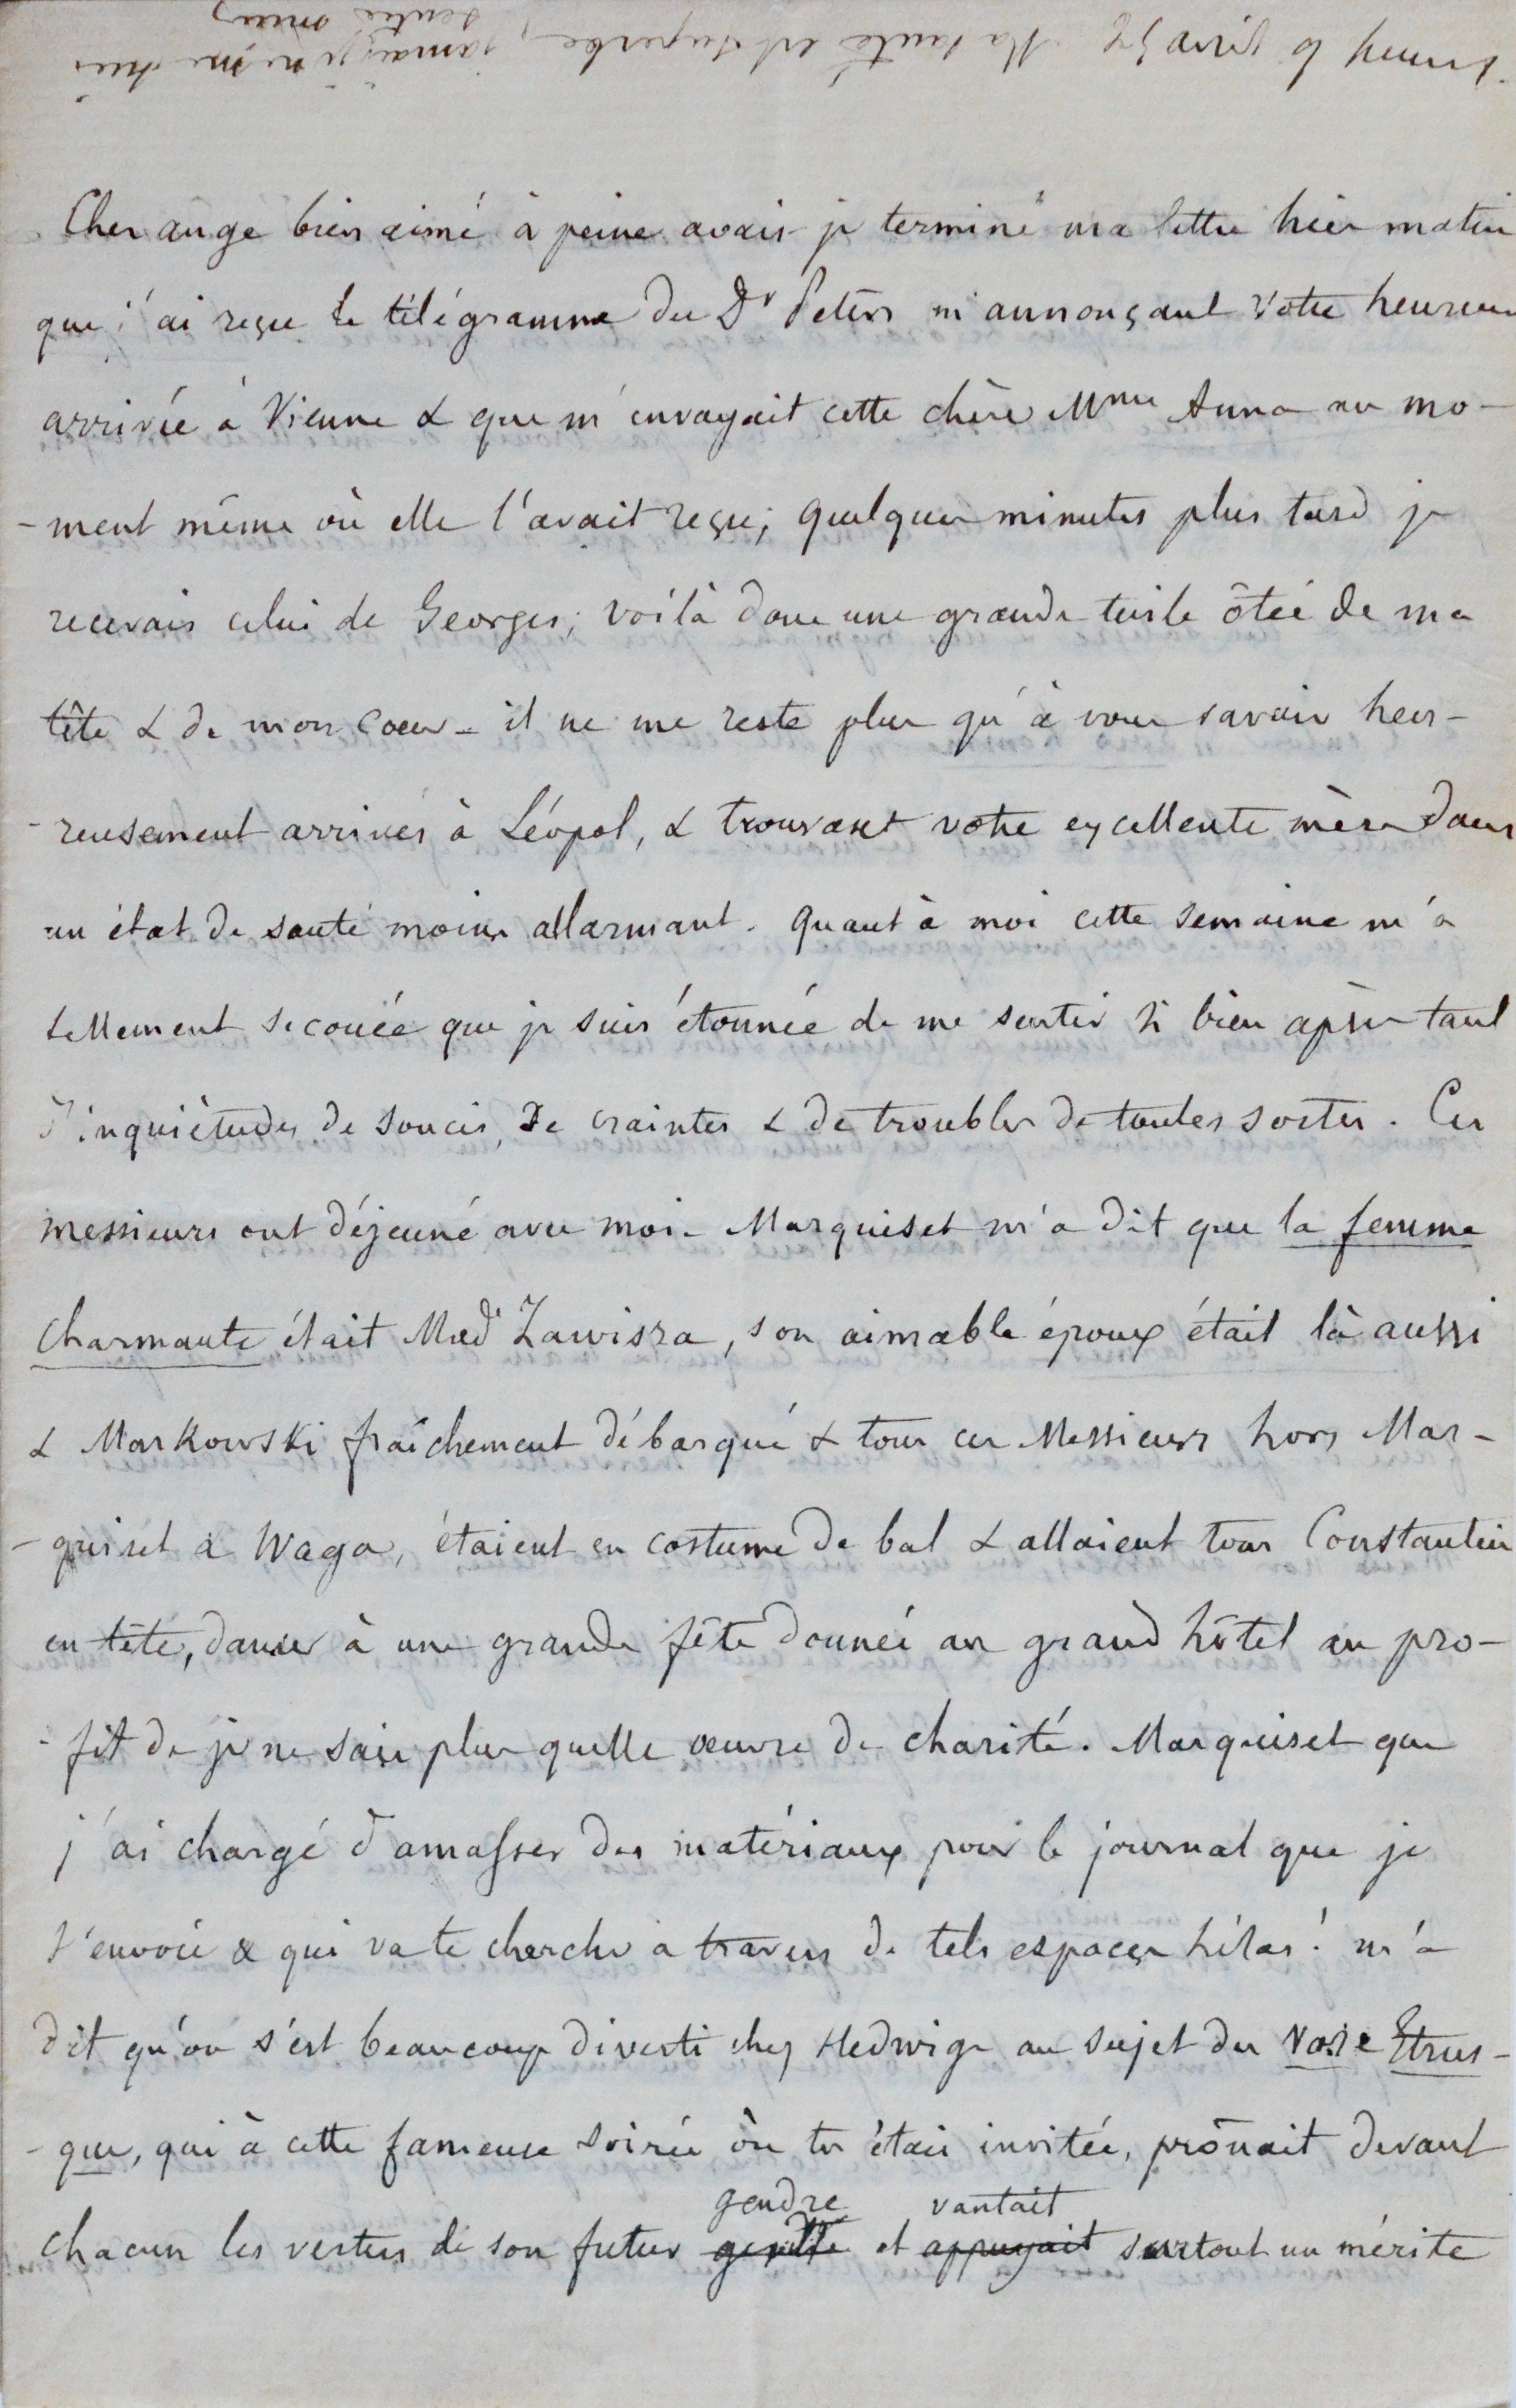 Ma santé est superbe, jamais je ne me suis
sentie mieux
Cher ange bien aimé à peine avais-je terminé ma lettre hier matin
que j'ai reçu le télégramme du Dr Peters m'annonçant votre heureuse
arrivée à Vienne & que m'envoyait cette chère Mme Anna au mo-
-ment même où elle l'avait reçu; quelques minutes plus tard je
recevais celui de Georges; voilà donc une grande tuile ôtée de ma
tête & de mon coeur - il ne me reste plus qu'à vous savoir heu-
-reusement arrivés à Léopol, & trouvant votre excellente mère dans
un état de santé moins allarmant. Quant à moi cette semaine m'a
tellement secouée que je suis étonnée de me sentir si bien après tant
d'inquiétudes de soucis, de craintes & de troubles de toutes sortes. Ces
messieurs ont déjeuné avec moi - Marquiset m'a dit que la femme
charmante était Mad Zawisza, son aimable époux était là aussi
& Markowski fraîchement débarqué & tous ces Messieurs hors Mar-
-quiset & Waga, étaient en costume de bal & allaient tous Constantin
en tête, danser à une grande fête donnée au grand hôtel au pro-
-fit de je ne sais plus quelle oeuvre de charité. Marquiset que
j'ai chargé d'amasser des matériaux pour le journal que je
t'envoie & qui va te chercher à travers de tels espaces hélas! m'a
dit qu'on s'est beaucoup diverti chez Hedwige au sujet du Vase Etrus-
-que, qui à cette fameuse soirée où tu étais invitée, prônait devant
gendre vantait
chacun les vertus de son futur et appuyait surtout un mérite